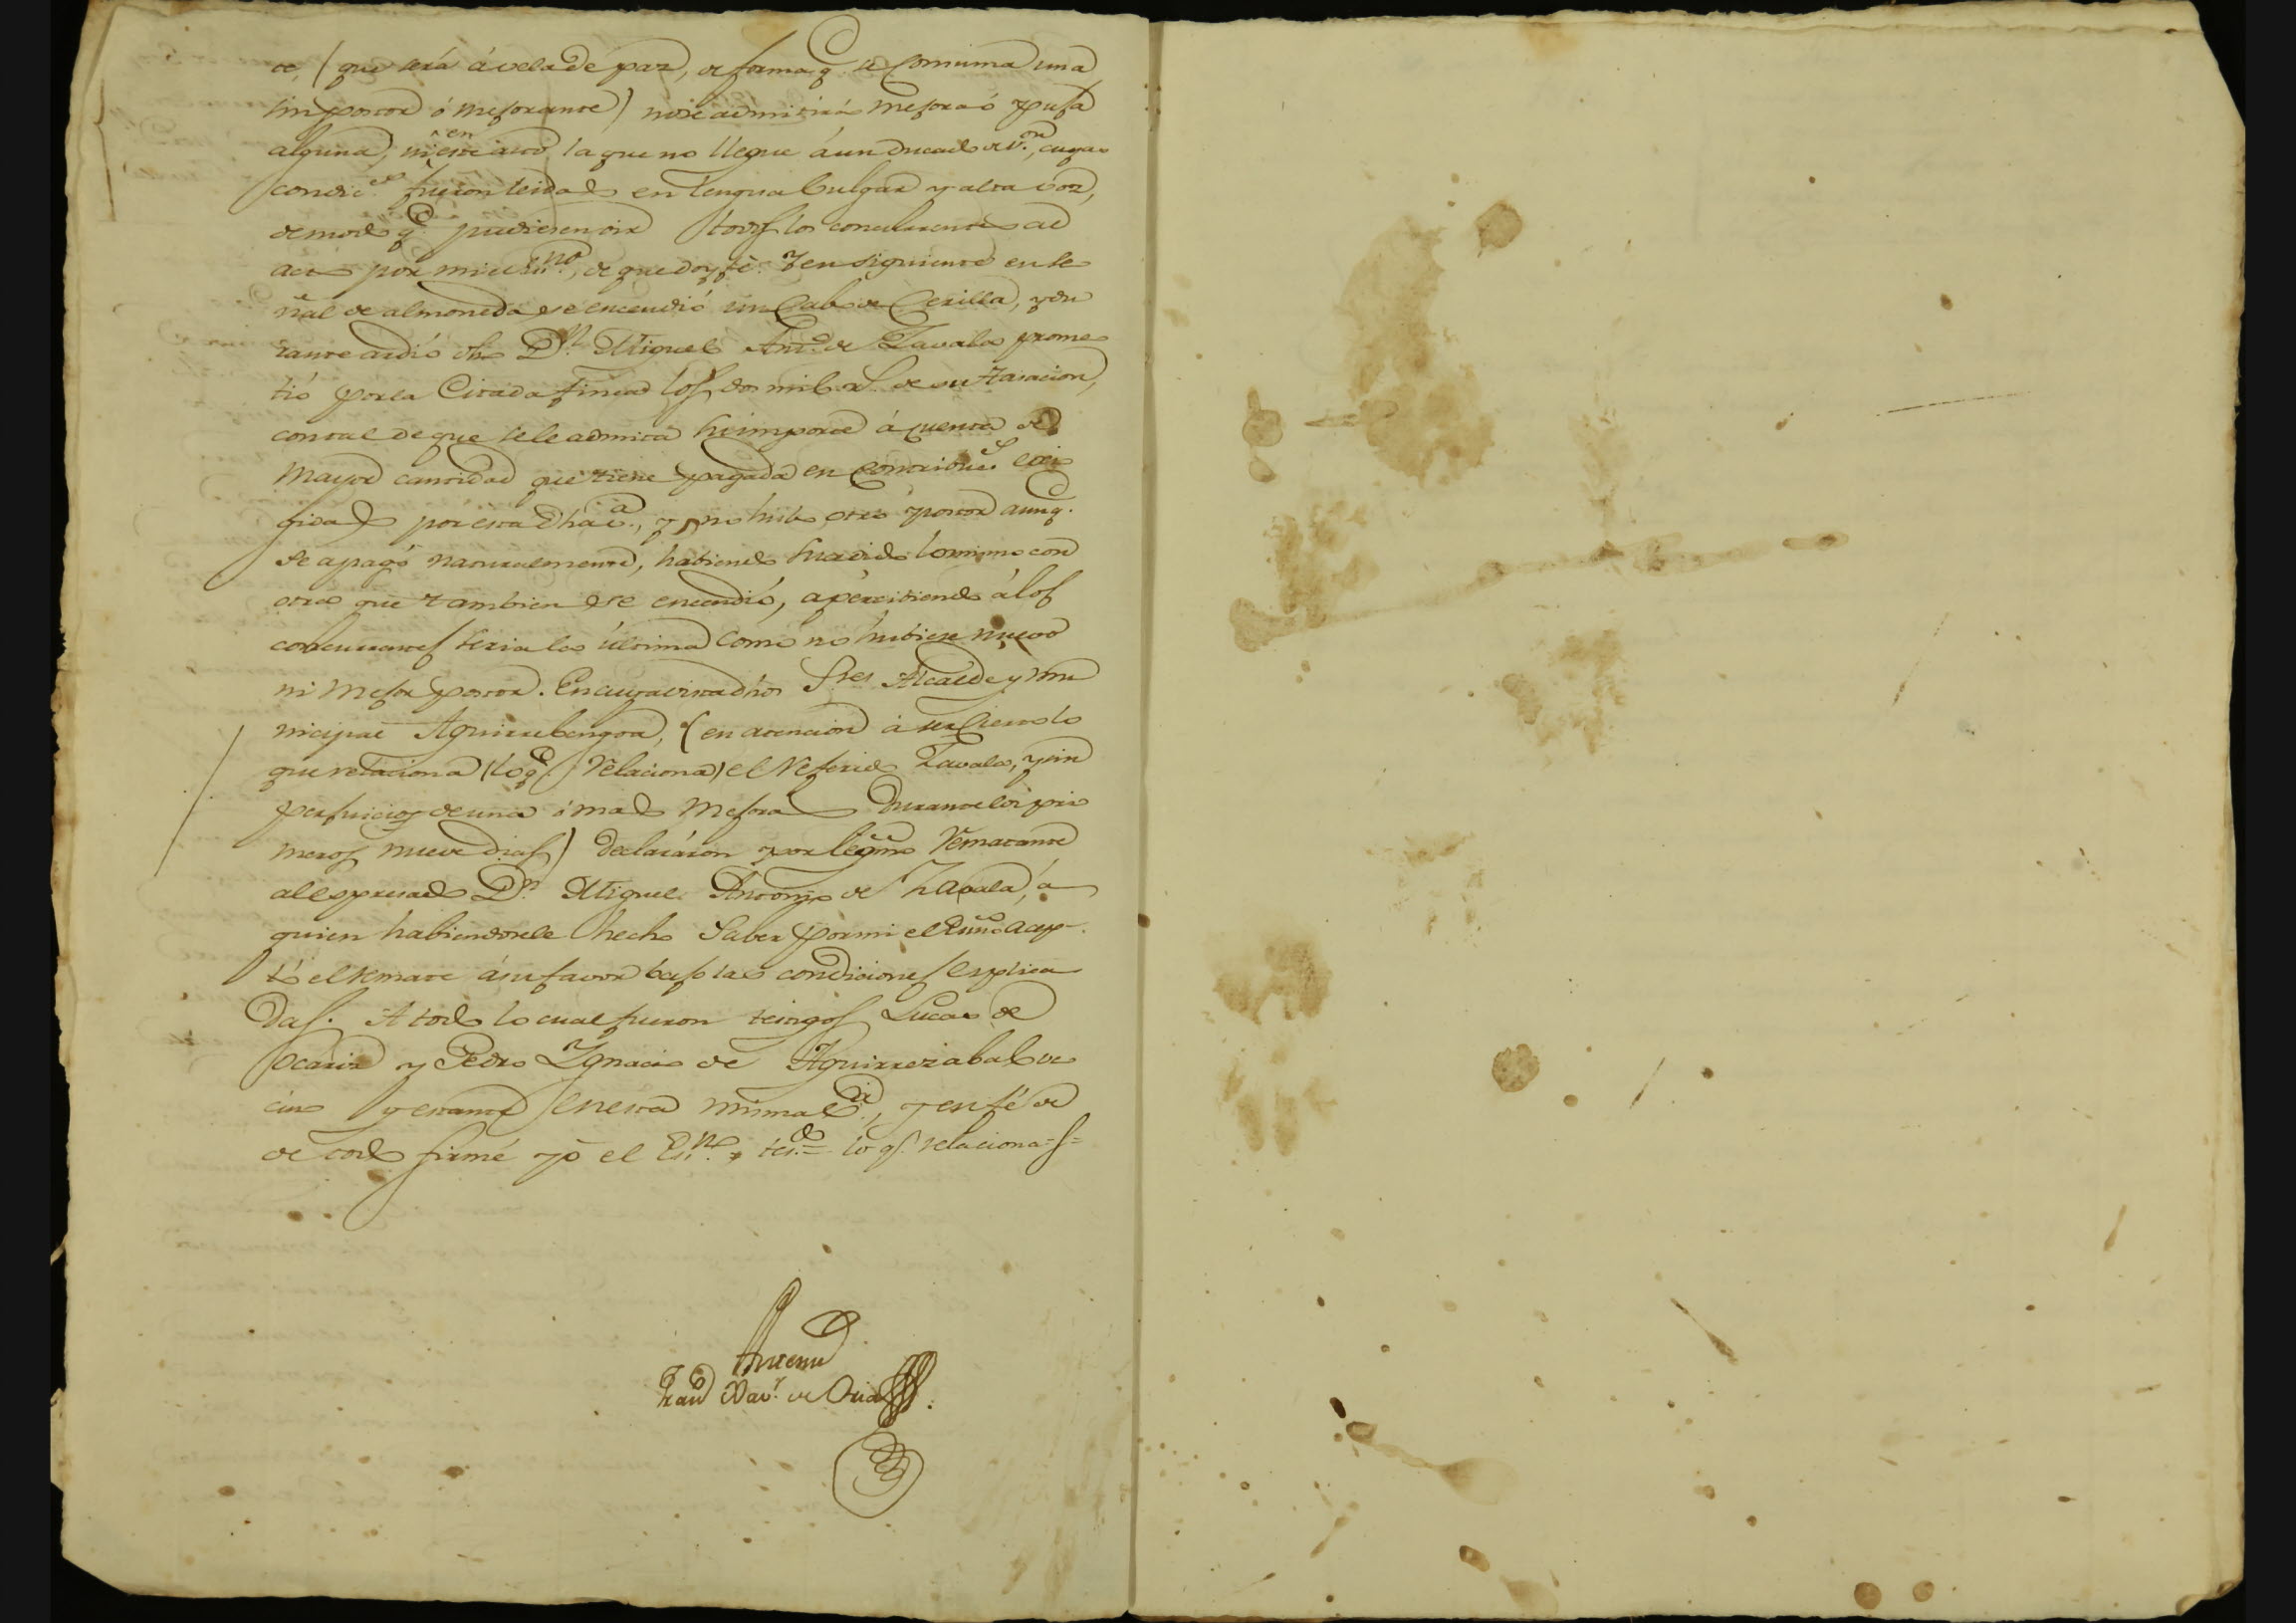 te, (que será á vela de par, de forma q.e se consuma una
sin postor ó mejorante) no se admitirá mejora ó puja
alguna, ni en este acto la que no llegue á un ducado de v.on, cuyas
condic.es fueron leidas en lengua bulgar y alta voz,
de modo q.e pudiesen oir todos los concurrentes al
acto por mi el Esno., de que doy fé. Y en siguiente en se
ñal de almoneda se encendió un cabo de cerilla, y du
rante ardió dho D.n Miguel Ant.o de Zavala prome
tió por la citada finca los dos mil r.s de su tasacion,
con tal de que se le admita su importe á cuenta de
mayor cantidad que tiene pagada en contribucion.s exi
gidas por esta dha v.a, y no hubo otro postor aunq.e
se apagó naturalmente, habiendo sucedido lo mismo con
otro que tambien se encendió, apercibiendo á los
concurrentes seria la última como no hubiese nuevo
ni mejor postor. En cuya vista dhos S.res Alcalde y mu
nicipal Aguirrebengoa, (en atencion á ser cierto lo
que relaciona (lo q.e relaciona) el referido Zavala, y sin
perjuicio de una ó mas mejoras durante los pri
meros nueve dias) declararon por legmo rematante
al espresado D.n Miguel Antonio de Zavala, á
quien habiendosele hecho saber por mi el Esno. acep-
tó el remate á su favor bajo las condiciones esplica
das. A todo lo cual fueron testigos Lucas de
Ocariz y Pedro Ygnacio de Aguirrezabal ve
cino y estante en esta misma v.a, y en fé de
de todo firmé yo el Es.no = tes.do = lo q.e relaciona = s =
Antemi
Fran.co Xav.r de Oria